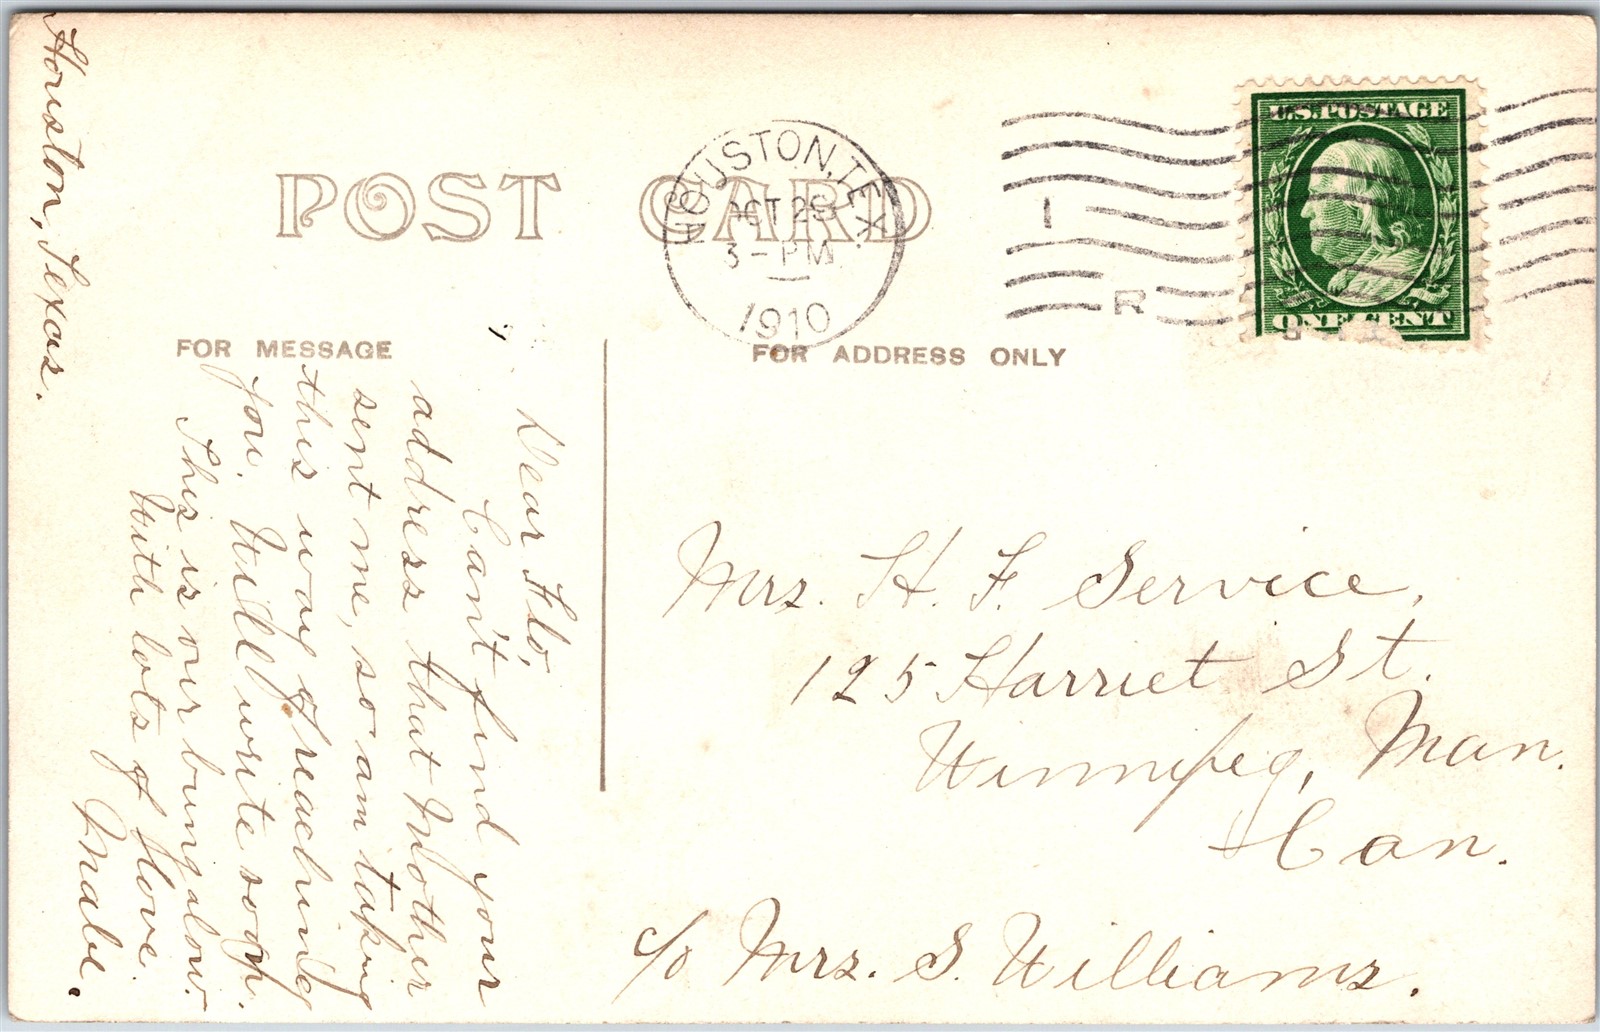 POST CARD
HOUSTON, TEX.
OCT 29
3 - PM
1910
I
R
U.S. POSTAGE
ONE CENT
FOR MESSAGE
FOR ADDRESS ONLY
Houston, Texas.
Dear Flo,
Can't find your
address that Mother
sent me, so am taking
this way of reaching
you. Will write soon.
This is our bungalow.
With lots of love
Mabe.
Mrs. H. F. Service,
125 Harriet St.
Winnipeg, Man.
Can.
c/o Mrs. S. Williams.